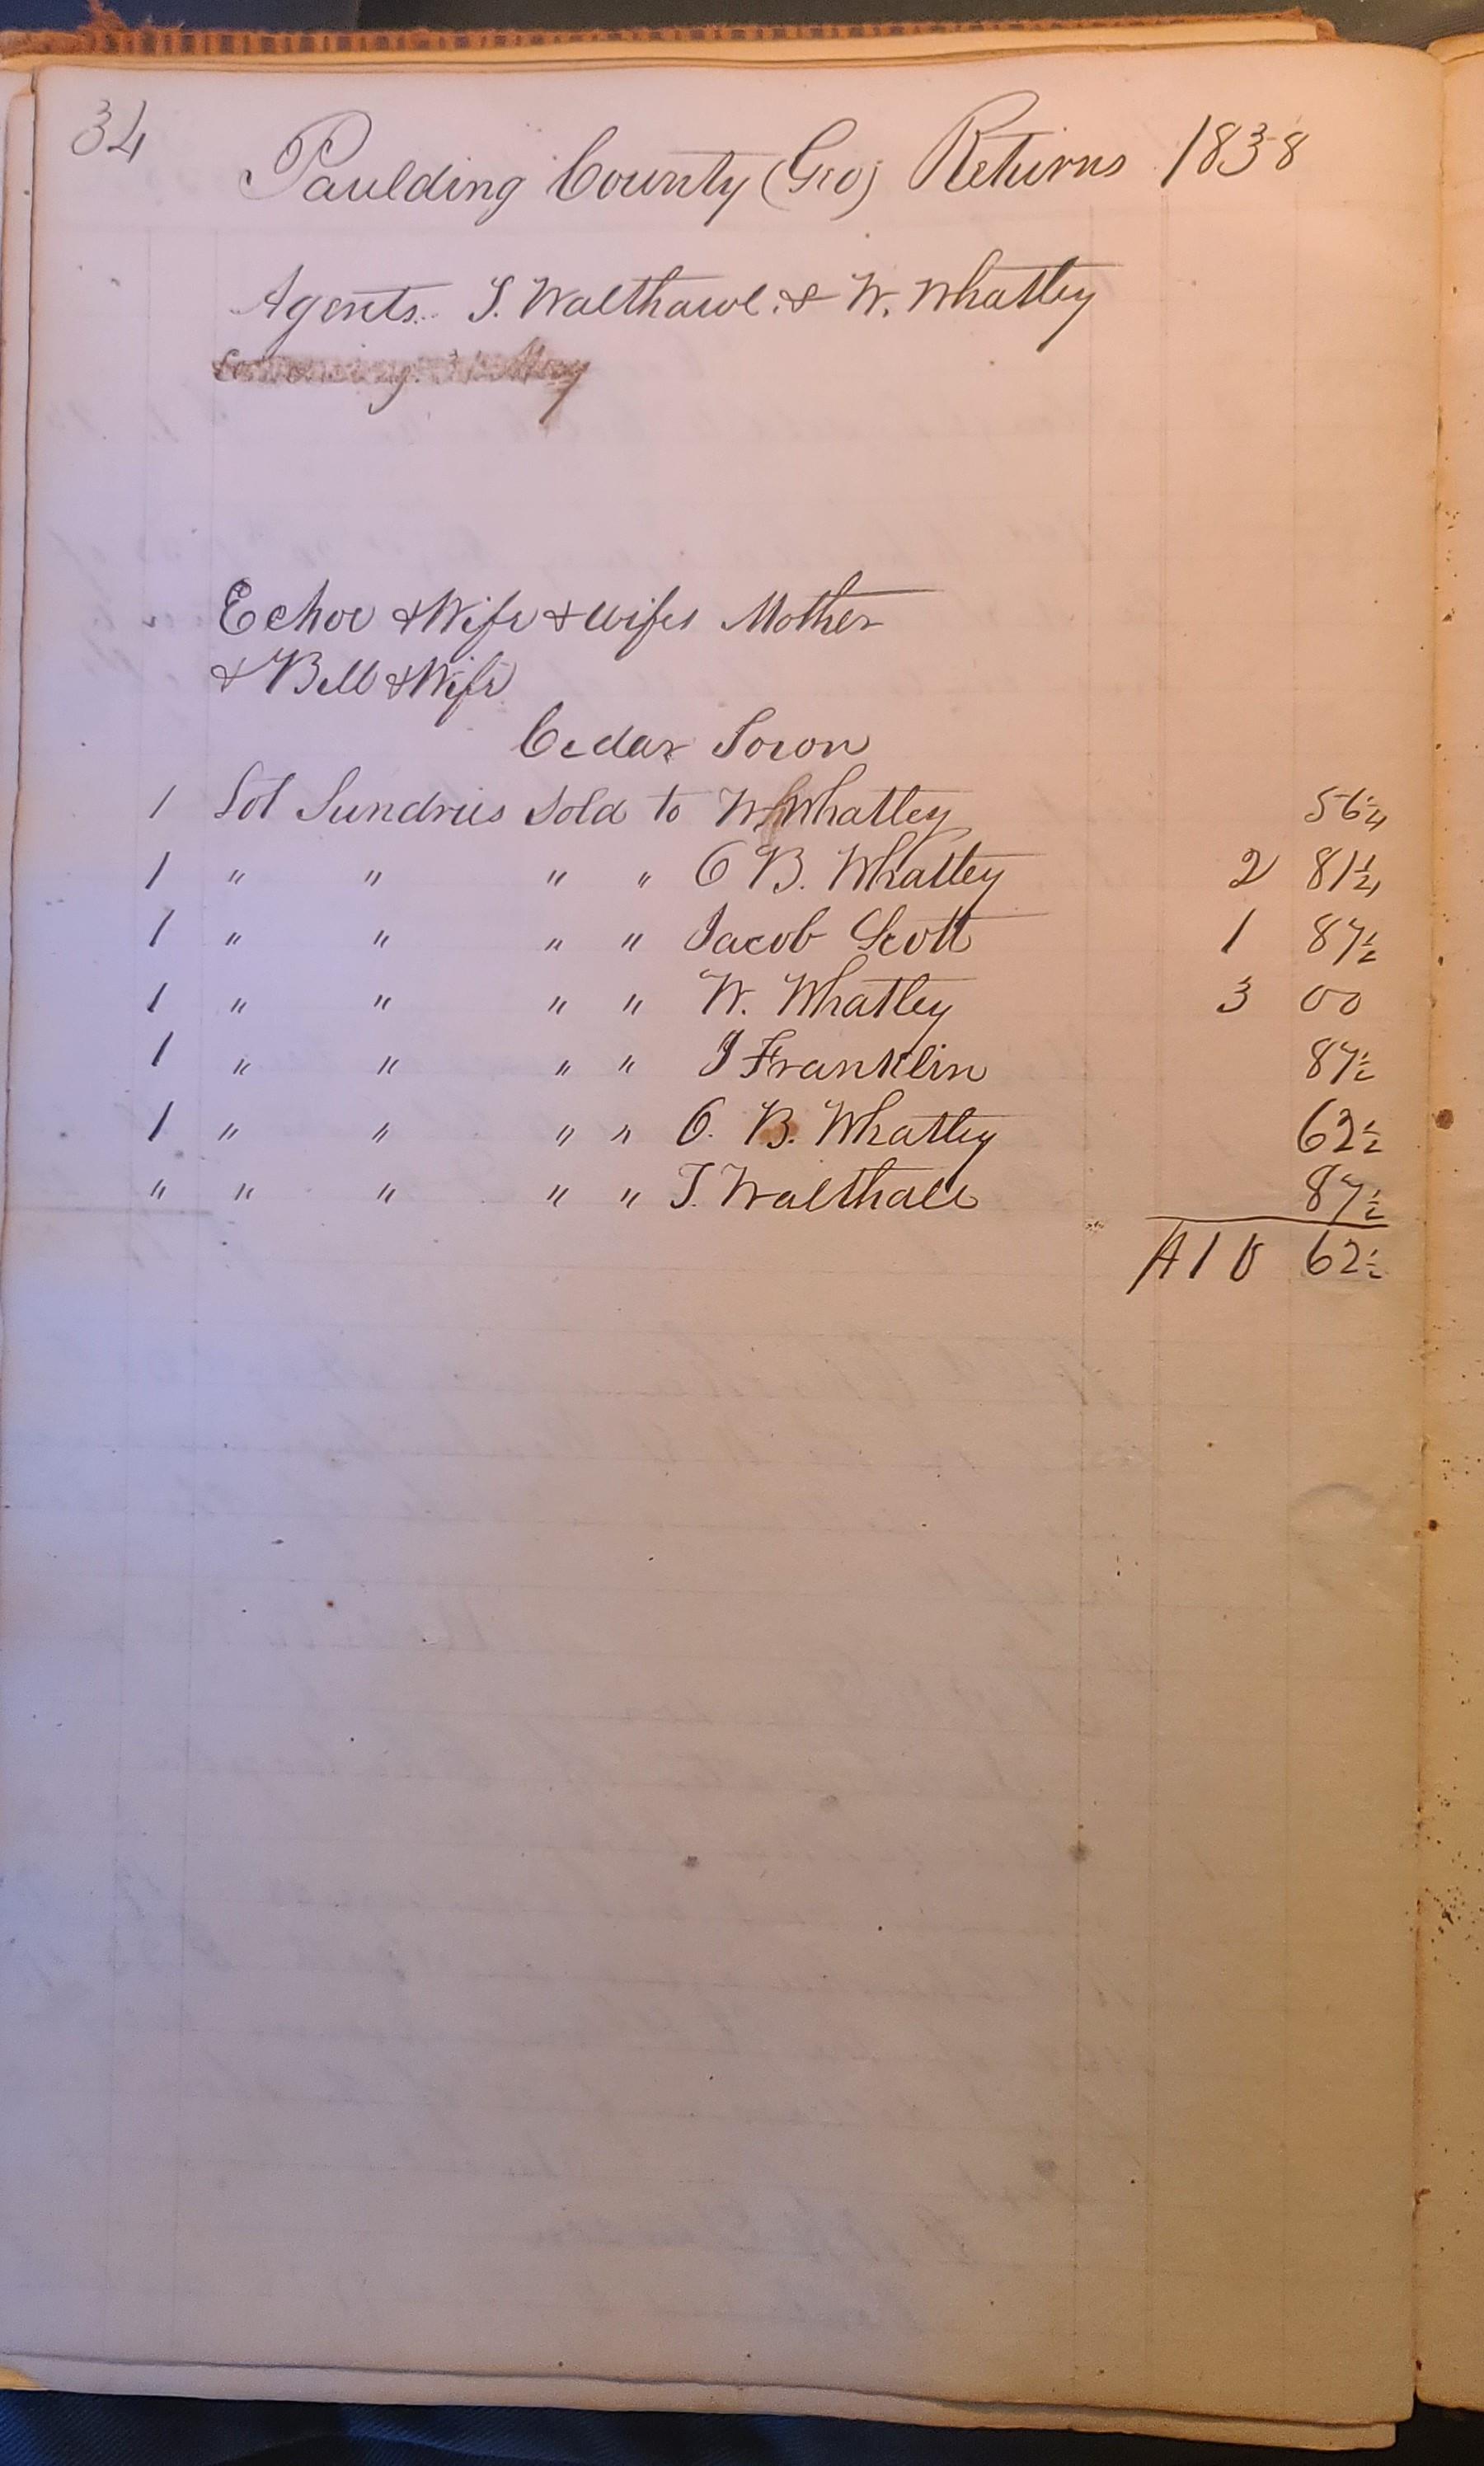 34
Paulding County (Geo) Returns 1838
Agents. T. Walthall & W. Whatley
Echoe & Wife & wifes Mother
& Bell & Wife
Cedar Town
1 Lot Sundries Sold to W. Whatley 56¼
1 " " " " O B. Whatley 2 81½
1 " " " " Jacob Scott 1 87½
1 " " " " W. Whatley 3 00
1 " " " " J Franklin 87½
1 " " " " O. B. Whatley 62½
" " " " " T. Walthall 87½
10 62½